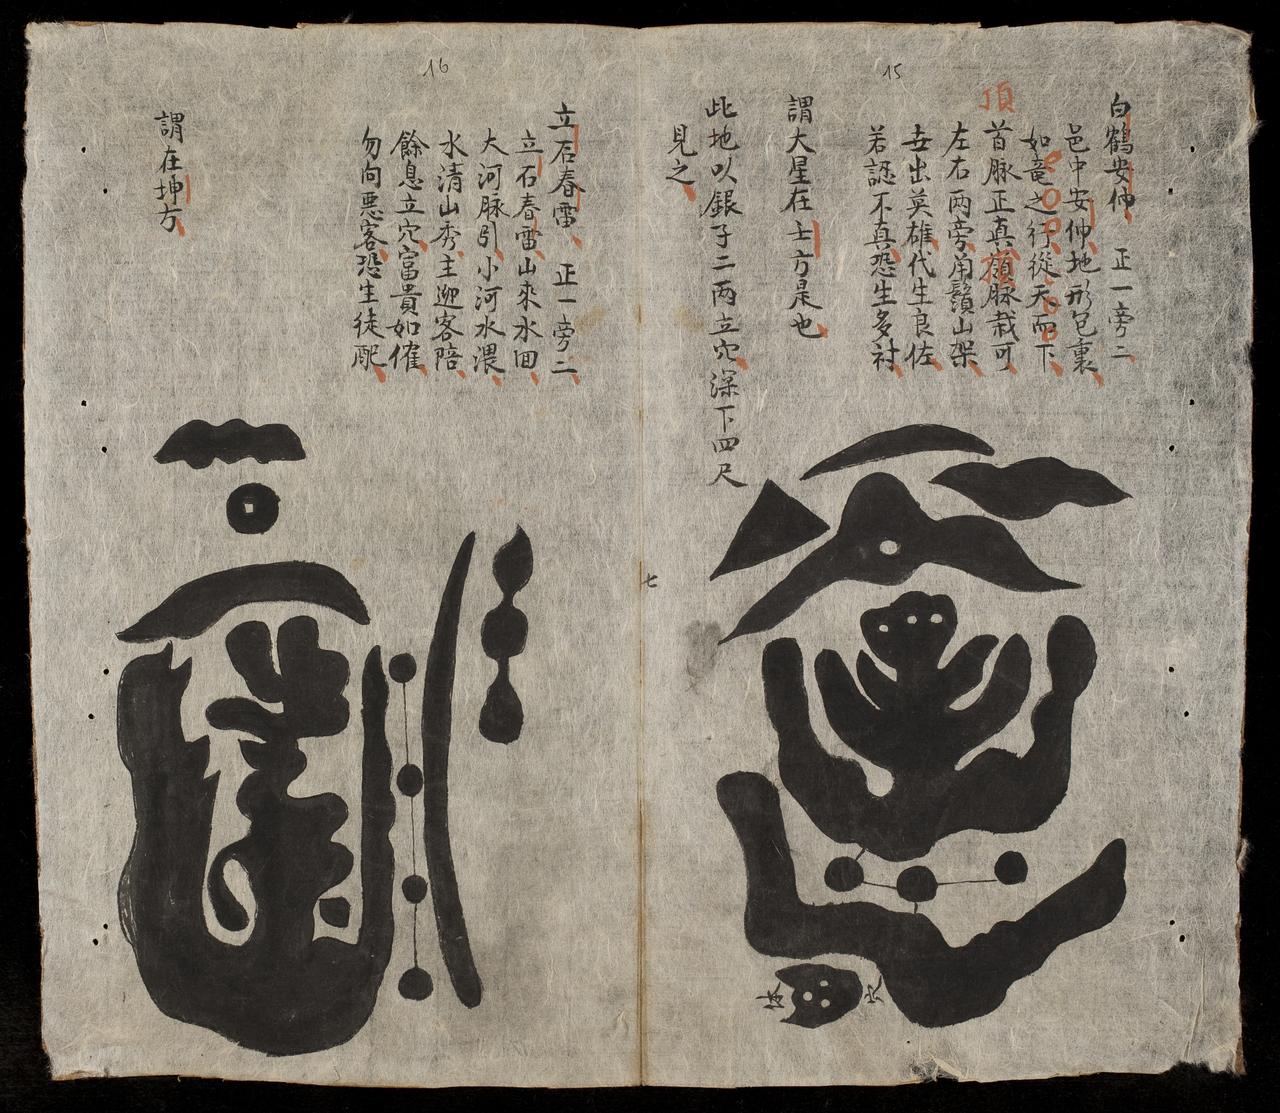 15
白鶴安仲 正一旁二
邑中安仲地形包裏
如竜之行從天而下
頂
首脉正真顛脉栽可
左右两旁角鬚山架
世出英雄代生良佐
若認不真恐生多討
謂大星在壬方是也
此地以銀子二两立穴深下四尺
見之
穴
七
16
立石春雷 正一旁二
立石春雷山來水囬
大河脉引小河水濃
水清山秀主迎客陪
餘息立穴富貴如催
勿向悪客恐生徒配
謂在坤方